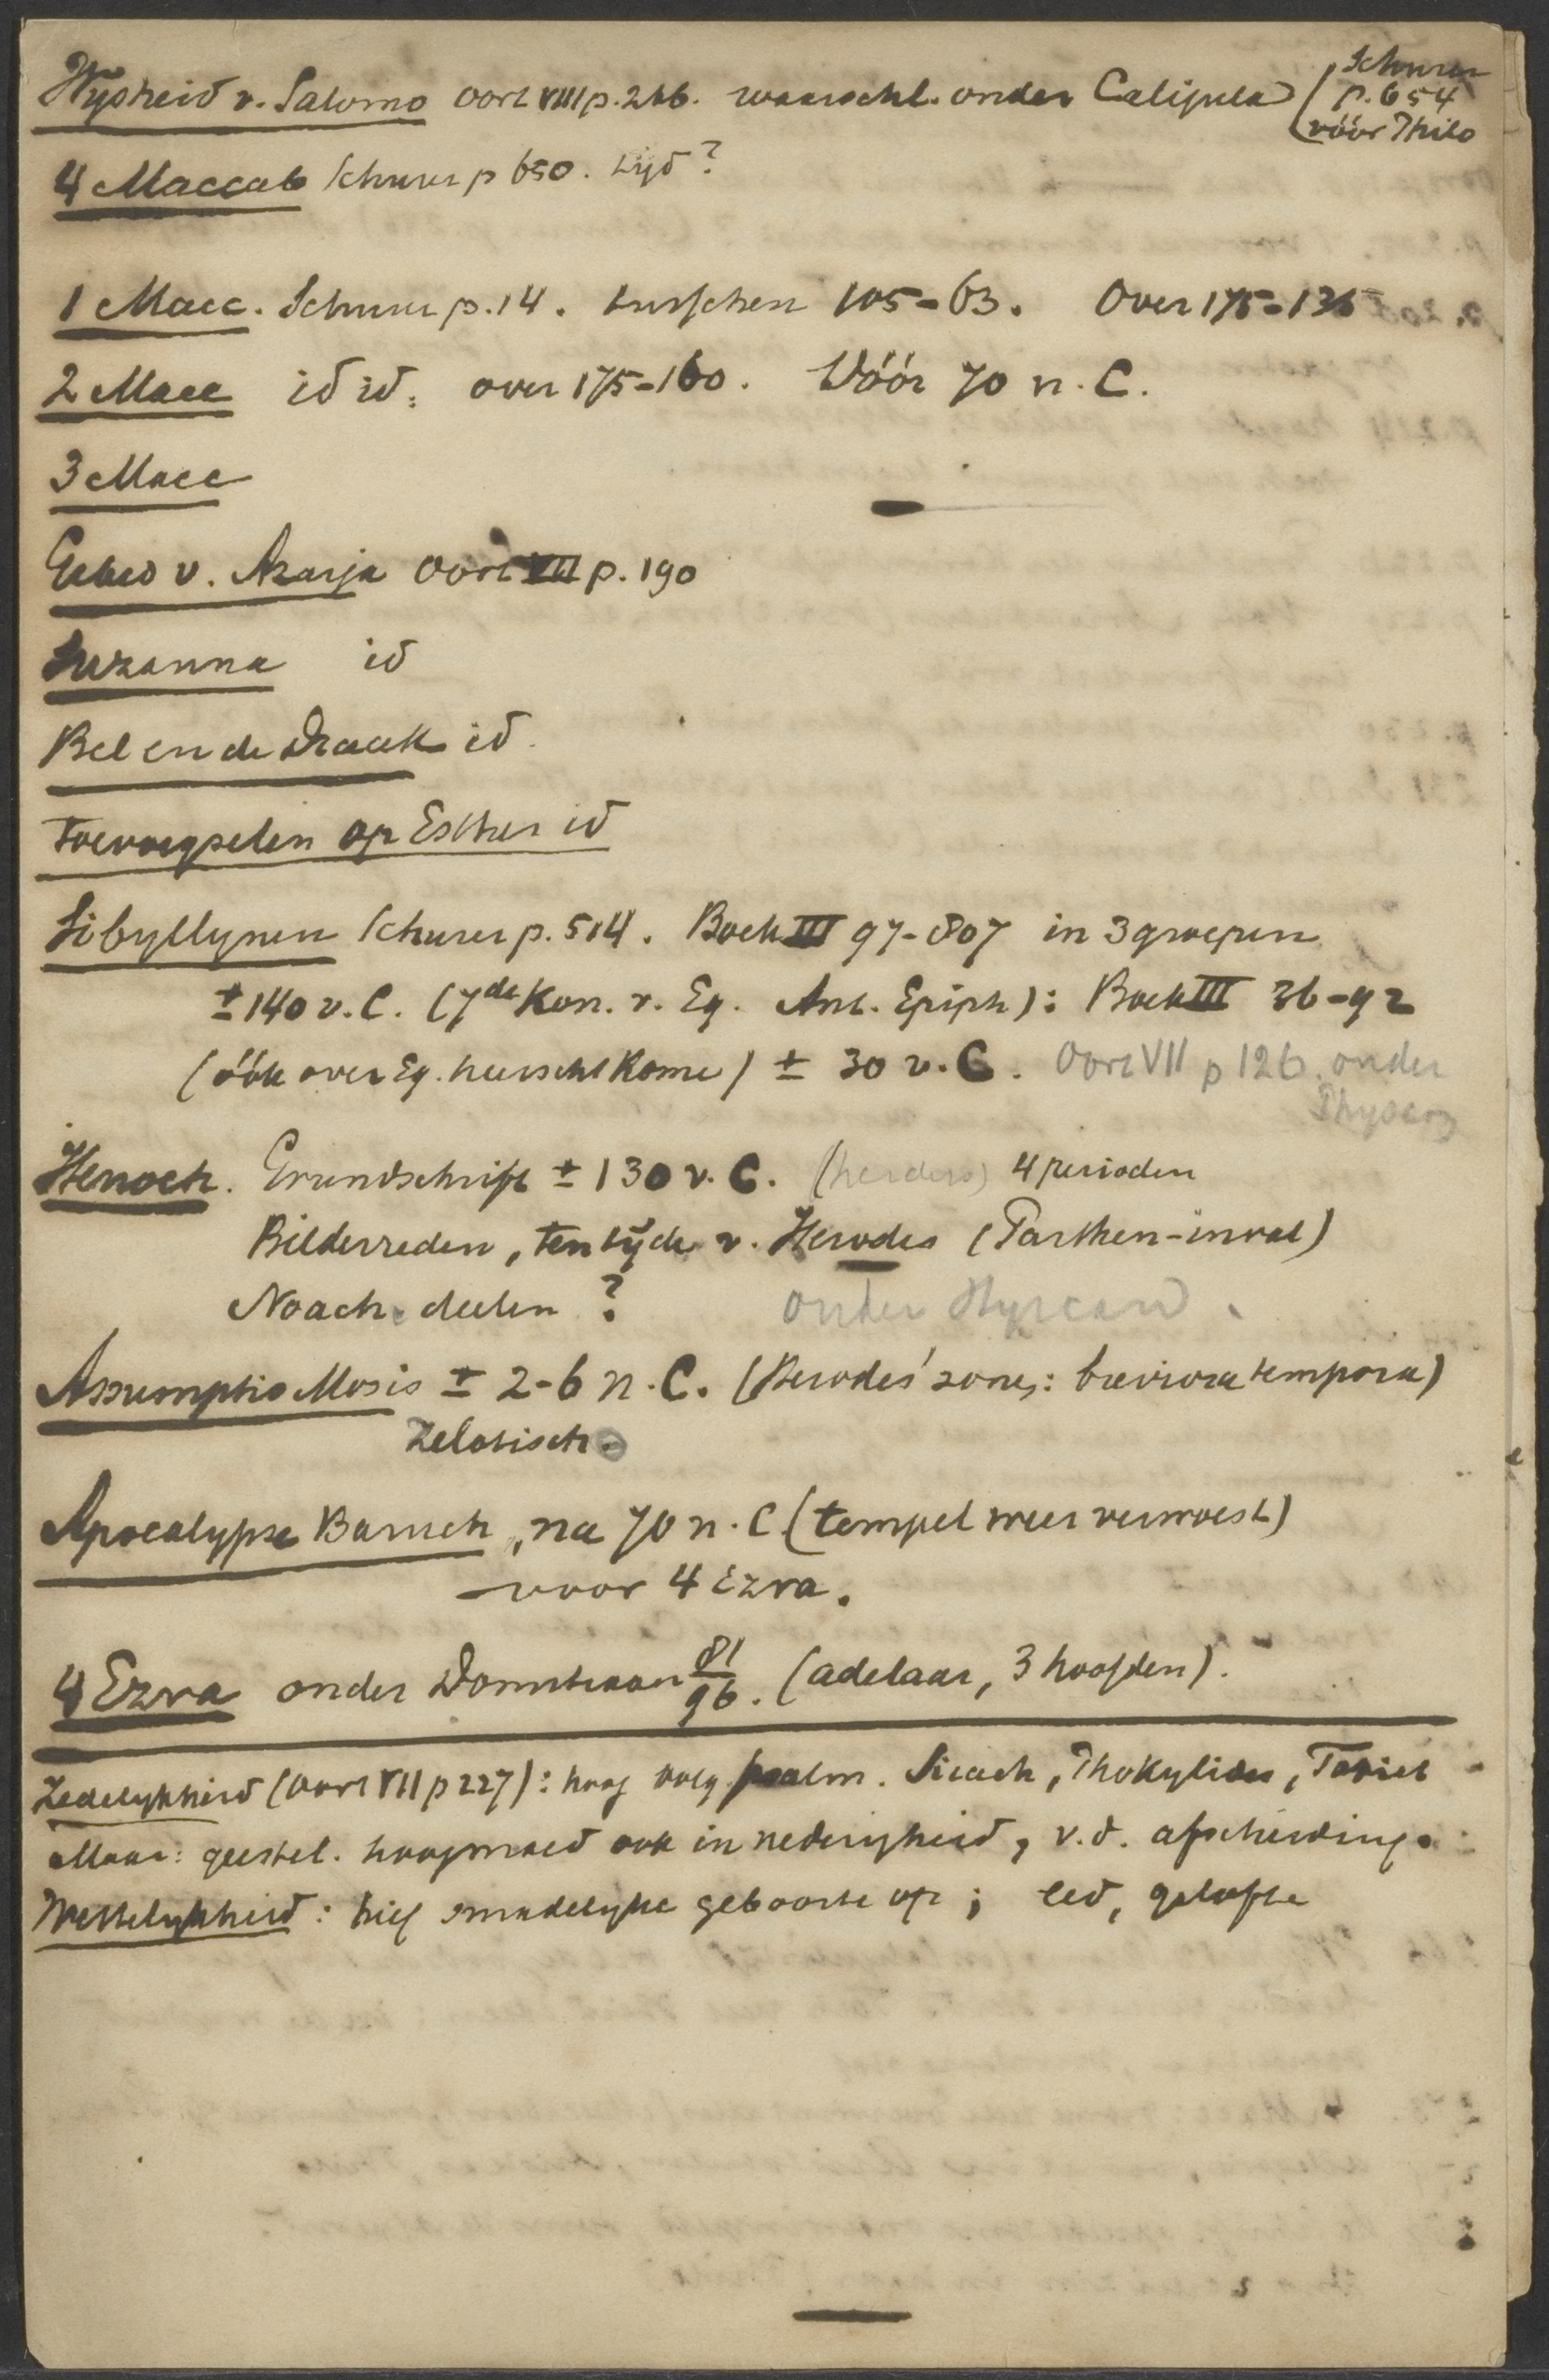 Wysheid v. Salomo Oort VIII p. 266. waarschl. onder Caligula (Schurer
p. 654
vóór Philo
4 Maccab Schurer p 650. tyd?
1 Macc. Schurer p. 14. tusschen 105-63. Over 175-135
2 Macc id id. over 175-160. Vóór 70 n. C.
3 Macc
Gebed v. Azarja Oort VII p. 190
Suzanna id
Bel en de Draak id.
Toevoegselen op Esther id
Sibyllynen Schurer p. 514. Boek III 97-807 in 3 groepen
± 140 v. C. (7de Kon. v. Eg. Ant. Epiph): Boek III 36-92
(óók over Eg. heerscht Rome) ± 30 v. C. Oort VII p 126. onder
Physcon
Henoch. Grundschrift ± 130 v. C. (herders) 4 perioden
Bilderreden, ten tyde v. Herodes (Parthen-inval)
Noach. deelen? onder Hyrcan
Assumptio Mosis ± 2-6 n. C. (Herodes' zones: breviora tempora)
Zelotisch.
Apocalypse Baruch, na 70 n. C (tempel weer verwoest)
voor 4 Ezra.
4 Ezra onder Domitiaan 81/96. (adelaar, 3 hoofden).
Zedelykheid (Oort VII p 227): hoog volg. psalm. Sirach, Phokylides, Tobiet
Maar: geestel. hoogmoed ook in nederigheid, v. d. afscheiding.
Wettelykheid: hief zmedelyke geboorte op; eed, gelofte